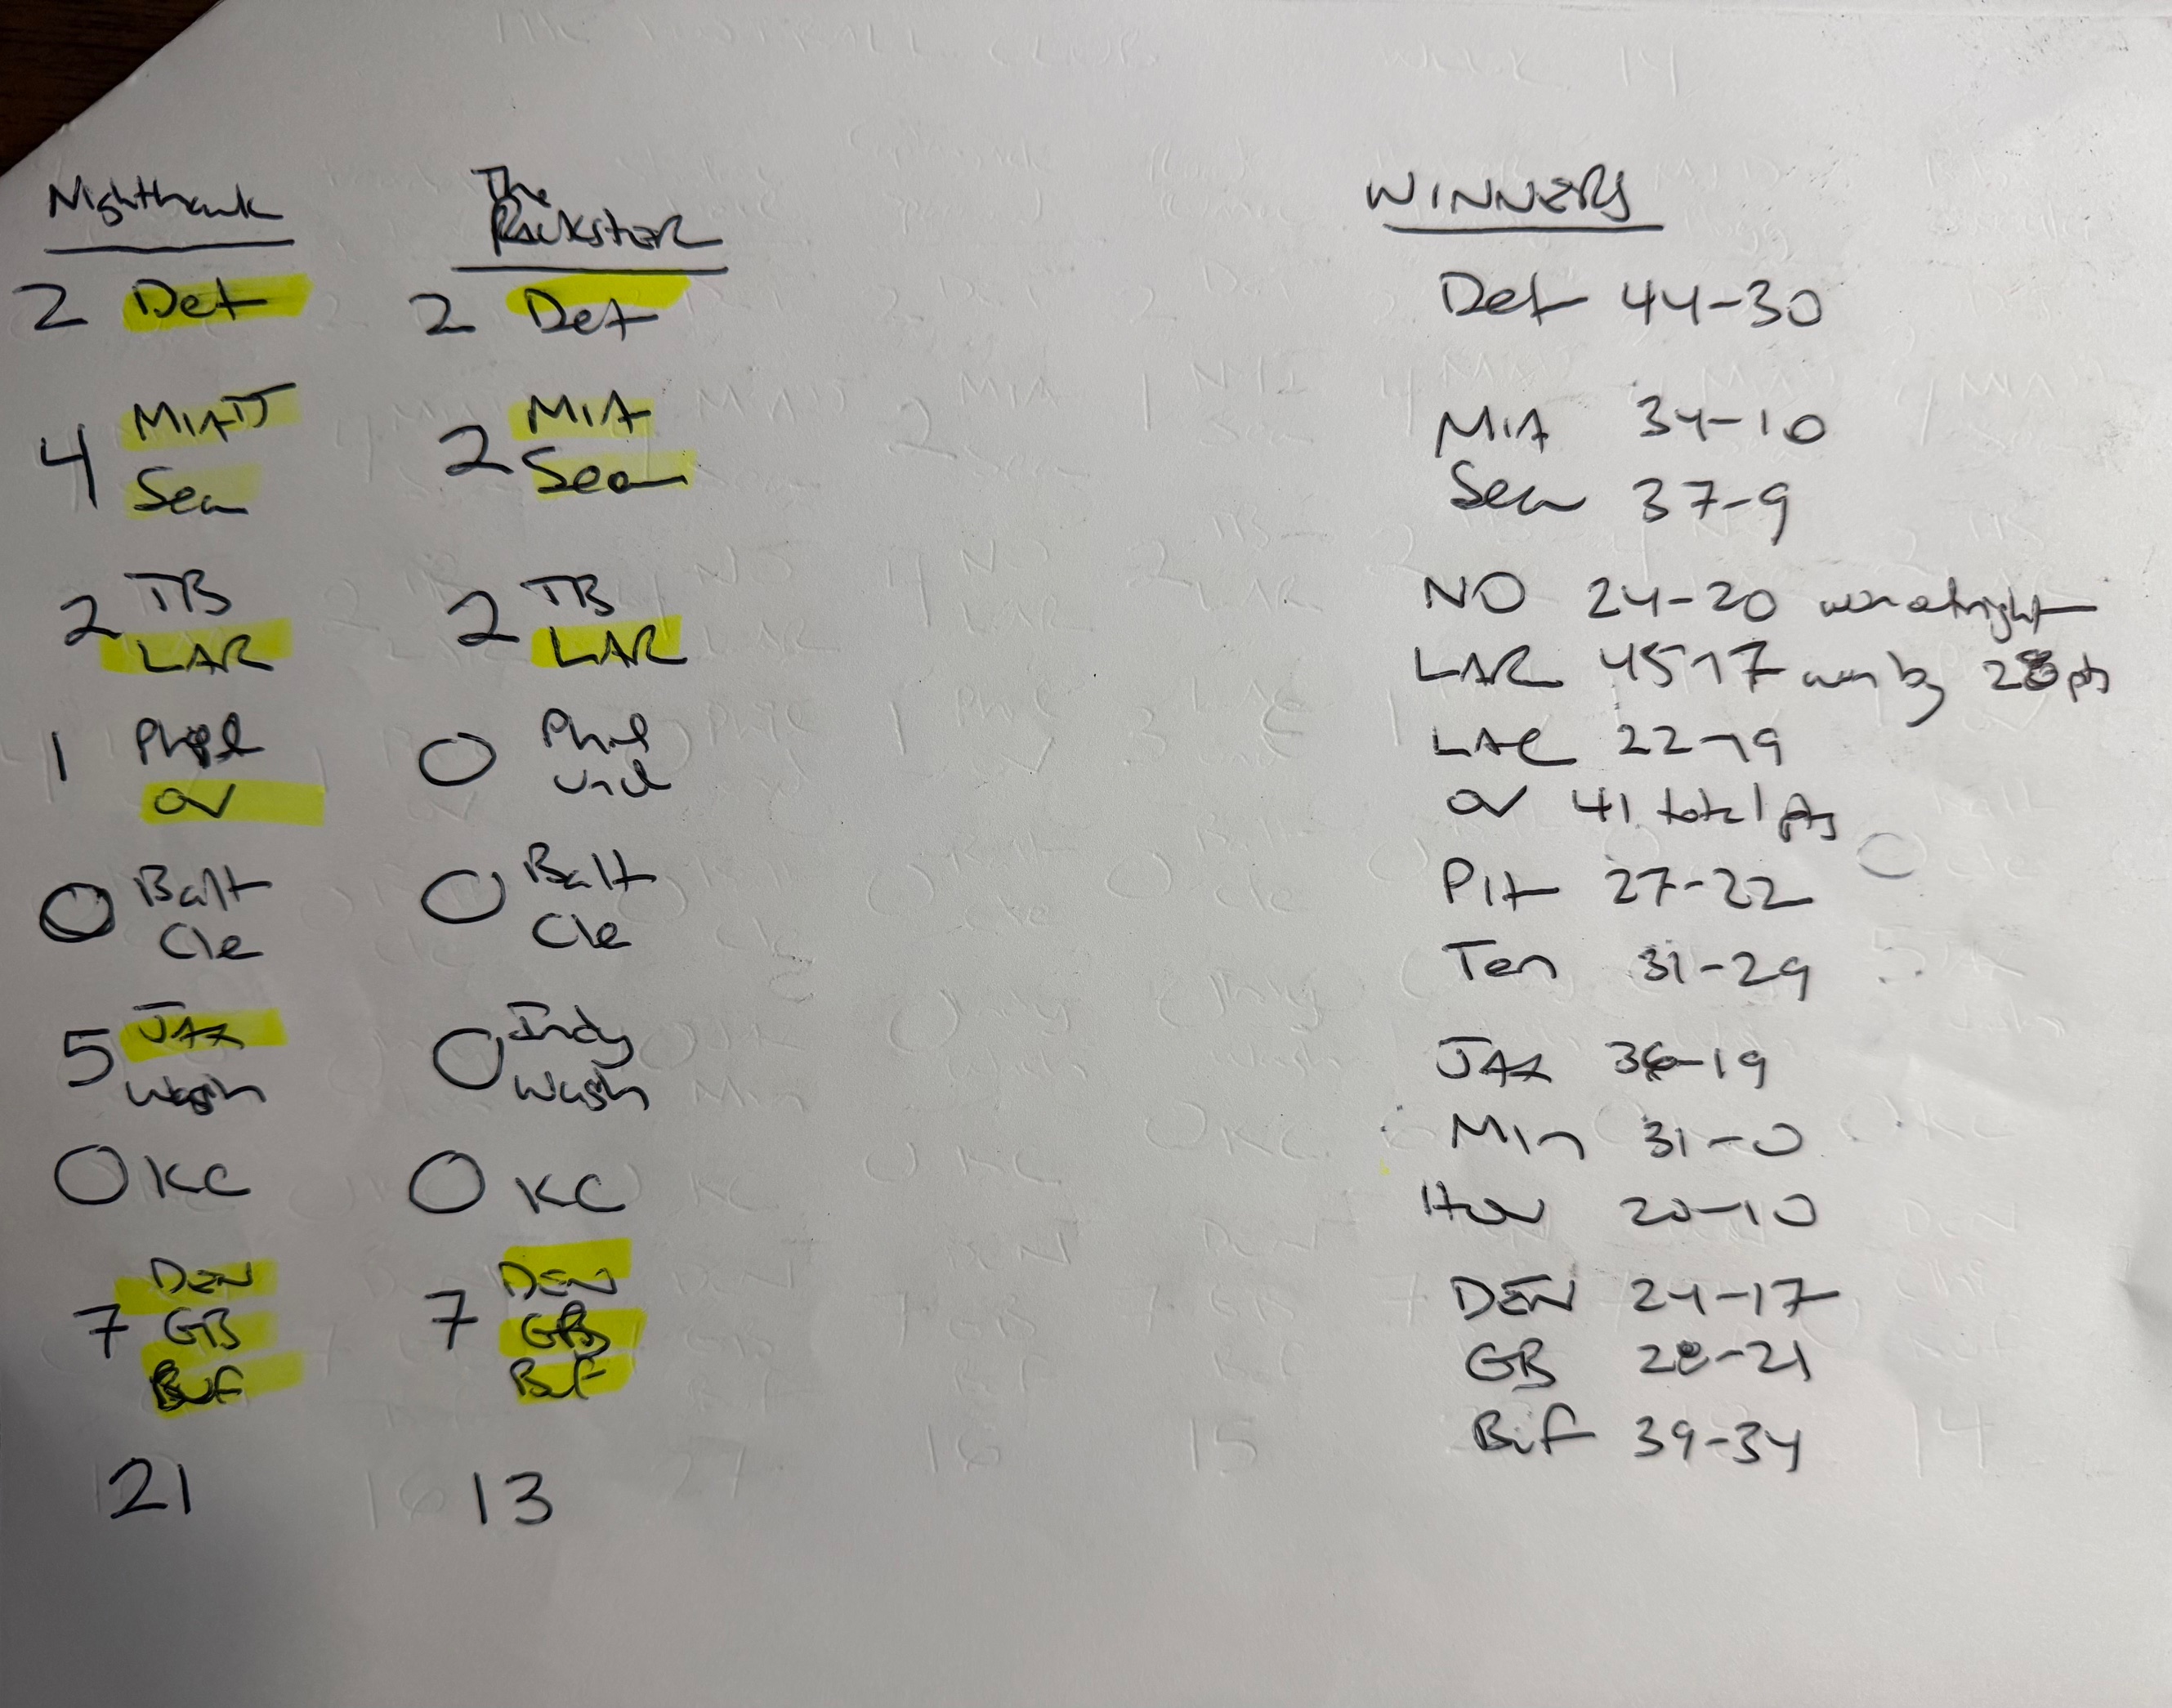 Nighthawk
2 Det
4 MIA TJ
Sea
2 TB
LAR
1 Phil
OV
0 Balt
Cle
5 JAX
Wash
0 KC
7 DEN
GB
Buf
21
The
RockstER
2 Det
2 MIA
Sea
2 TB
LAR
0 Phil
und
0 Balt
Cle
0 Indy
Wash
0 KC
7 DEN
GB
Buf
13
WINNERS
Det 44-30
MIA 34-10
Sea 37-9
NO 24-20 won outright
LAR 45-17 won by 28 pts
LAC 22-19
OV 41 total pts
Pit 27-22
Ten 31-29
JAX 36-19
Min 31-0
Hou 20-10
DEN 24-17
GB 28-21
Buf 39-34